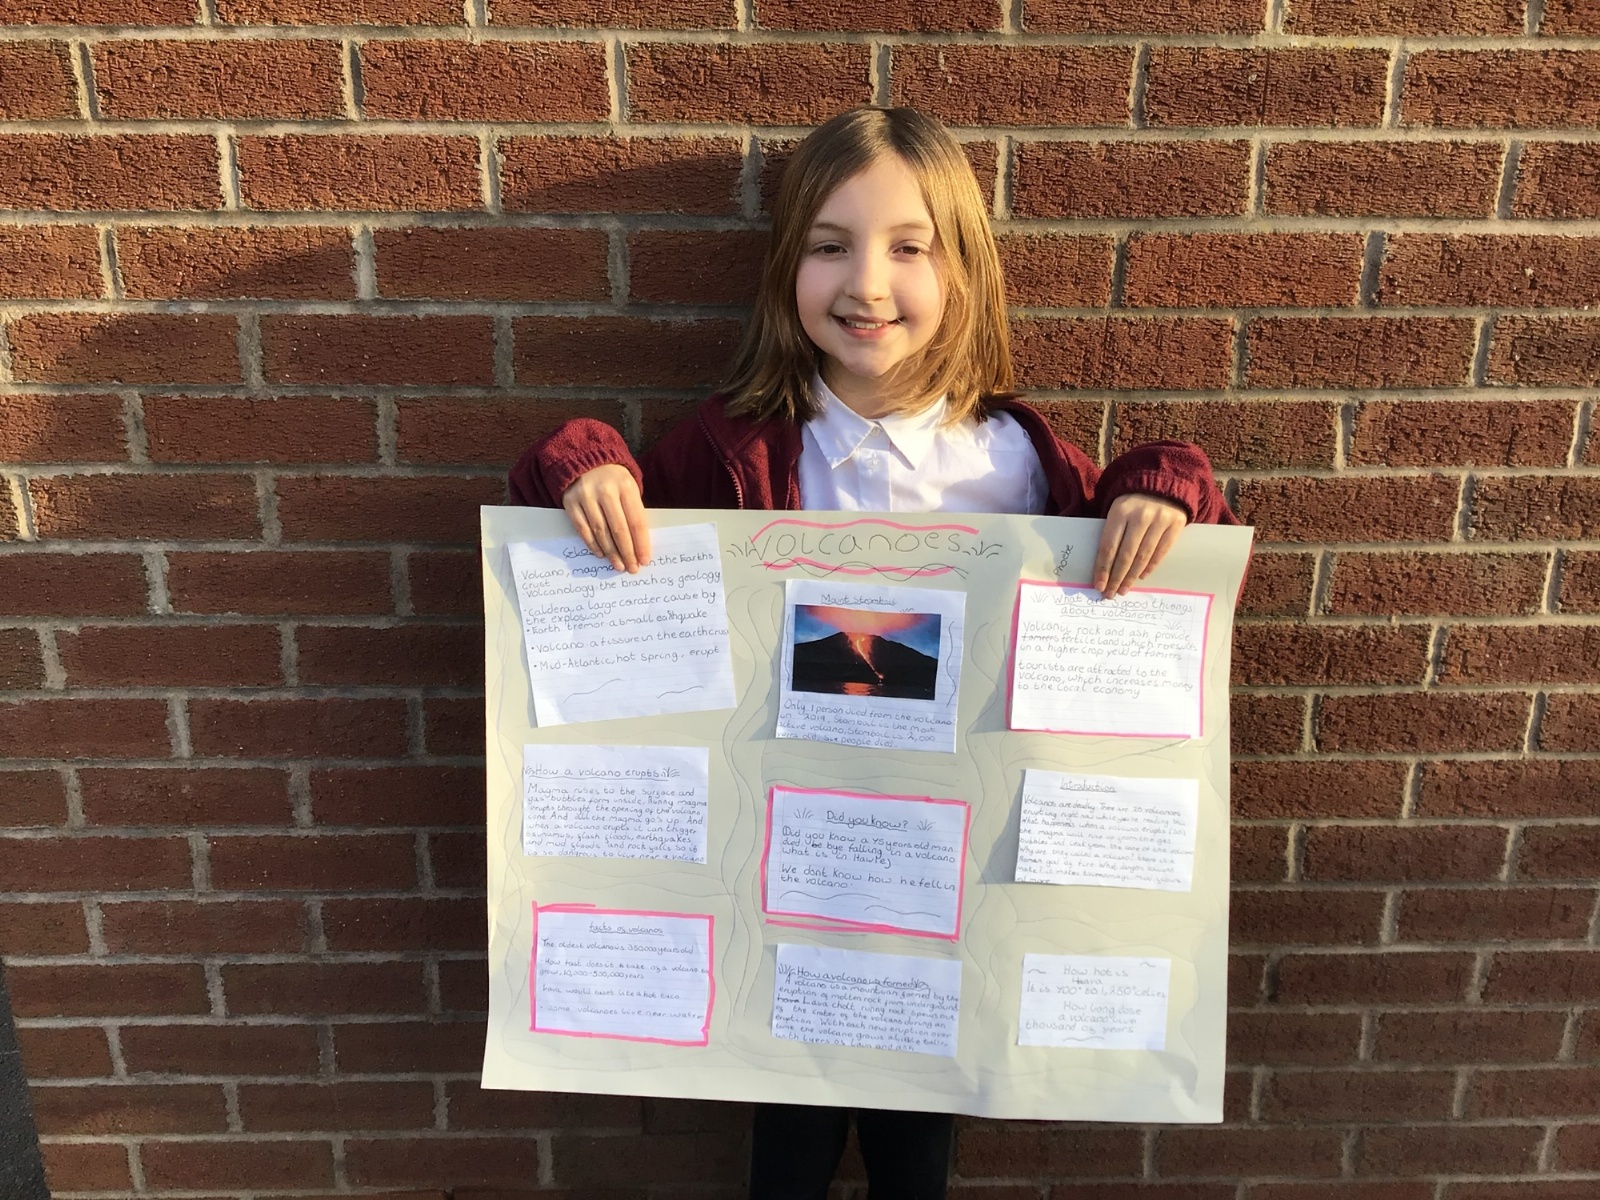 Volcanoes
Phoebe
Volcano, magma in the Earths
crust
volcanology the branch of geology
caldera, a large carater cause by
the explosion
Earth tremor, a small eathquake
Volcano: a fissure in the earthcrus
Mid-Atlantic, hot spring, erupt
Only 1 person died from the volcano
in 2019, Stomboli is the most
active volcano, Stomboli is 2,000
years old people died.
What are 3 good things
about volcanoes?
Volcanic rock and ash provide
farmers fertile land which results
in a higher crop yeild of farmers
tourists are attracted to the
volcano, which increases money
to the local economy
How a volcano erupts
Magma rises to the surface and
gas bubbles form inside. Runny magma
erupts throught the opening of the volcano
cone And all the magma go's up. And
when a volcano erupts it can trigger
tsunamis, flash floods, earthquakes
and mud floods and rock falls so it
is so dangrous to live near a volcano
Did you know?
Did you know a 75 years old man
died be bye falling in a volcano
what is in
We dont know how he fell in
the volcano.
Introduction
Volcanos are deadly. There are volcanoes
erupting right now while you're reading this
what happenes when a volcano erupts
the magma will rise up from the gas
bubbles and leak from the cone of the volcano
Why are they called a volcano? there is a
Roman god of fire. What dangers
facts of volcanos
The oldest volcano is 350000 years old
How fast does it take a volcano to
grow, 10,000-500,000 years
Lava would taste like a hot
Some volcanoes live near water
How a volcano is formed
A volcano is a mountian formed by the
eruption of molten rock from underground
Lava (hot runny rock) spews out
of the crater of the volcano during an
eruption. With each new eruption over
time the volcano grows a little taller
with layers of lava and ash
How hot is
lava
It is 700° to 1,250° celies
How long dose
a volcano live
thousand of years